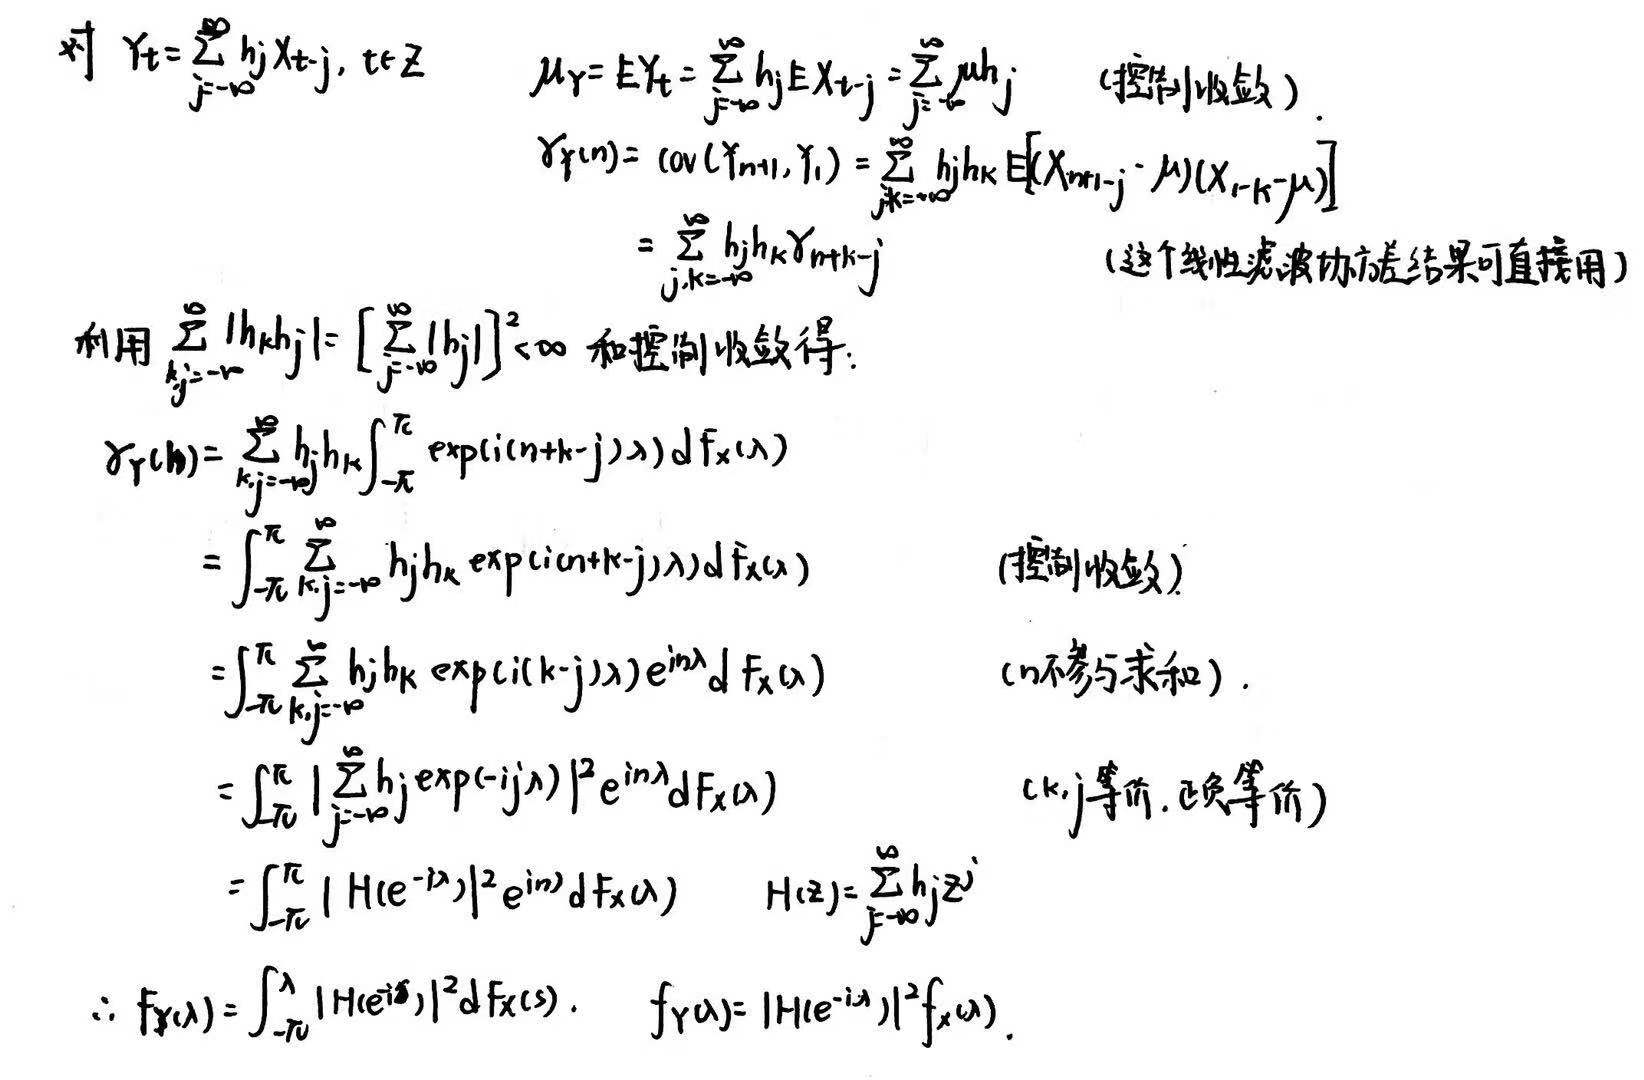 对 Y_t = \sum_{j=-∞}^{∞} h_j X_{t-j}, t∈Z    μ_Y = EY_t = \sum_{j=-∞}^{∞} h_j EX_{t-j} = \sum_{j=-∞}^{∞} μh_j    (控制收敛).
γ_Y(n) = cov(Y_{n+1}, Y_1) = \sum_{j,k=-∞}^{∞} h_j h_k E[(X_{n+1-j} - μ)(X_{1-k} - μ)]
= \sum_{j,k=-∞}^{∞} h_j h_k γ_{n+k-j}    (这个线性滤波协方差结果可直接用)
利用 \sum_{k,j=-∞}^{∞} |h_k h_j| = [\sum_{j=-∞}^{∞} |h_j|]^2 < ∞ 和控制收敛得:
γ_Y(n) = \sum_{k,j=-∞}^{∞} h_j h_k \int_{-π}^{π} exp(i(n+k-j)λ) dF_X(λ)
= \int_{-π}^{π} \sum_{k,j=-∞}^{∞} h_j h_k exp(i(n+k-j)λ) dF_X(λ)    (控制收敛).
= \int_{-π}^{π} \sum_{k,j=-∞}^{∞} h_j h_k exp(i(k-j)λ) e^{inλ} dF_X(λ)    (n不参与求和).
= \int_{-π}^{π} |\sum_{j=-∞}^{∞} h_j exp(-ijλ)|^2 e^{inλ} dF_X(λ)    (k,j等价.正负等价)
= \int_{-π}^{π} |H(e^{-iλ})|^2 e^{inλ} dF_X(λ)    H(z) = \sum_{j=-∞}^{∞} h_j z^j
∴ F_Y(λ) = \int_{-π}^{λ} |H(e^{-is})|^2 dF_X(s).    f_Y(λ) = |H(e^{-iλ})|^2 f_X(λ).